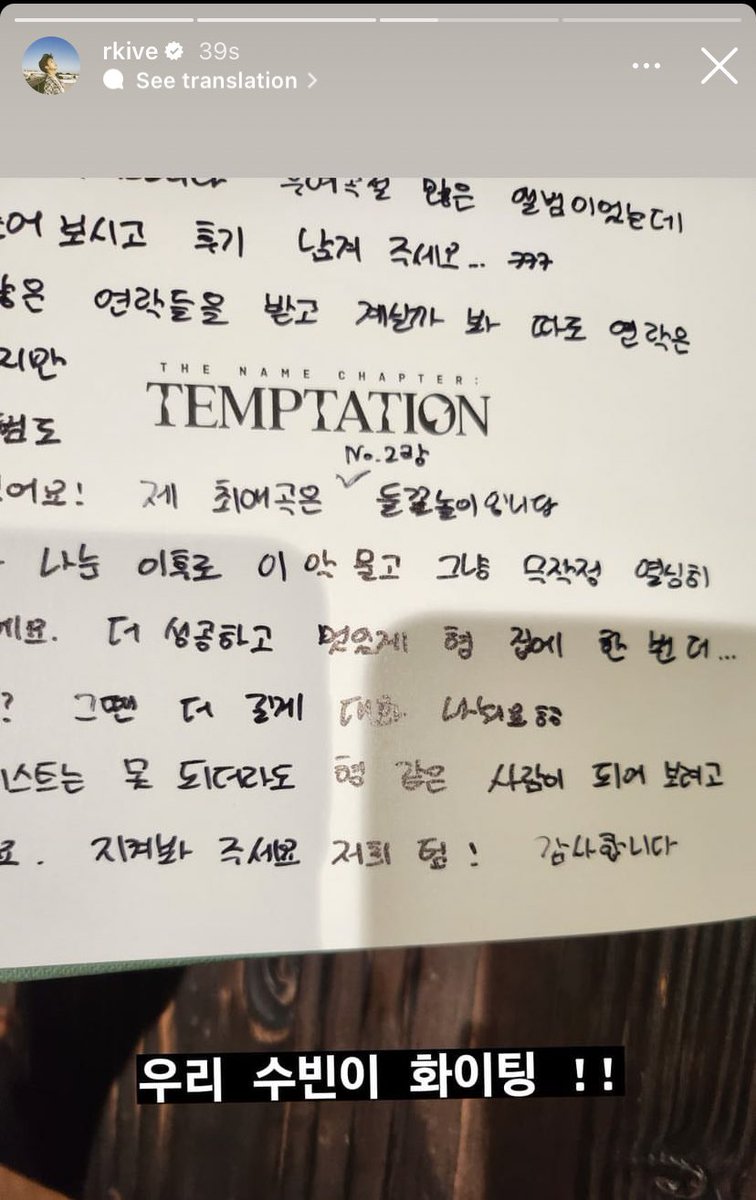 rkive 39s
See translation
많은 앨범이었는데
보시고 후기 남겨 주세요... ㅋㅋㅋ
많은 연락들을 받고 계실까 봐 따로 연락은
지만
THE NAME CHAPTER:
TEMPTATION
범도
No.2랑
어요! 제 최애곡은 ✓ 들꽃놀이입니다
나눈 이후로 이 악 물고 그냥 무작정 열심히
에요. 더 성공하고 멋있게 형 집에 한 번 더...
? 그땐 더 길게 대화 나눠요ㅎㅎ
스트는 못 되더라도 형 같은 사람이 되어 보려고
요. 지켜봐 주세요 저희 팀! 감사합니다
우리 수빈이 화이팅 !!